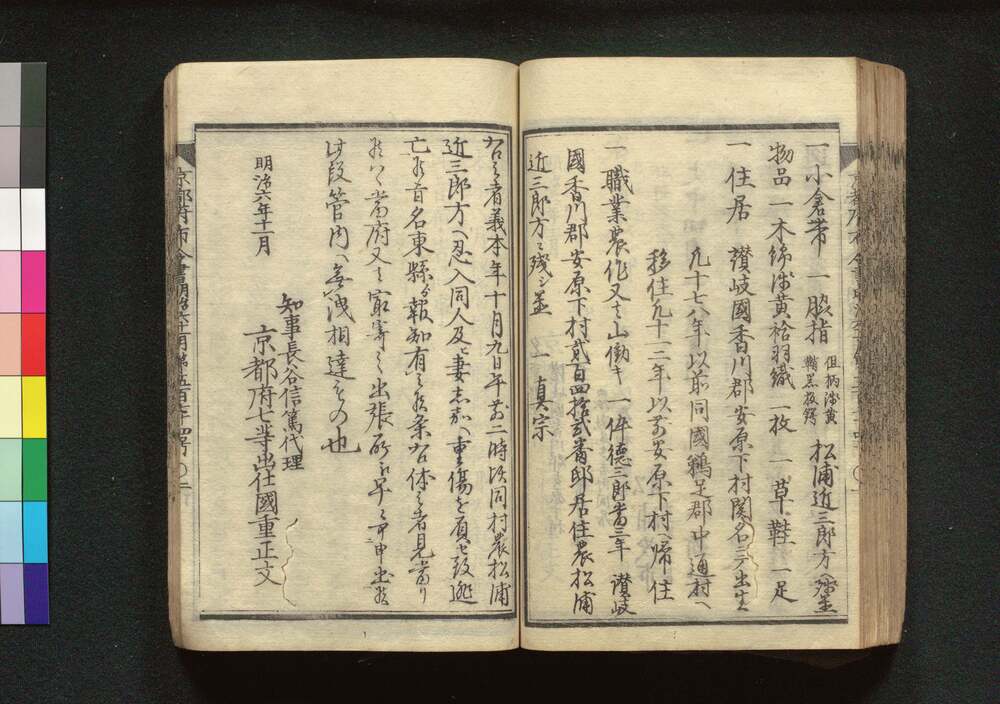 一小倉帯 一脇指 但柄浅黄 鞘黒仮鍔 松浦近三郎方ニ残置
物品 一木綿浅黄袷羽織一枚 一草鞋一足
一住居 讃岐國香川郡安原下村関名ニテ出生
九十七八年以前同國鵜足郡中通村ヘ
移住凡十二年以前安原下村ヘ帰住
一職業農作又ハ山働キ 一伜徳三郎当三年 讃岐
國香川郡安原下村貳百四拾貳番邸居住農松浦
近三郎方ニ残シ置 一真宗
右之者義本年十月九日午前二時頃同村農松浦
近三郎方ヘ忍入同人及ヒ妻志加ヘ重傷を負セ致逃
亡候旨名東縣ゟ報知有之候条右体之者見当リ
候ハヽ当府又ハ最寄之出張所ヘ早々可申出候
此段管内ヘ無洩相達るもの也
明治六年十一月
知事長谷信篤代理
京都府七等出仕國重正文
京都府布令書明治六年十一月第五百十四号 〇二